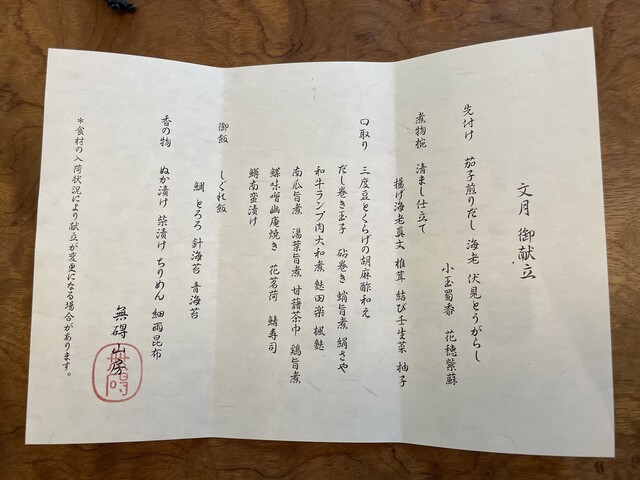 文月 御献立
先付け 茄子煎りだし 海老 伏見とうがらし
小玉蜀黍 花穂紫蘇
煮物椀 清まし仕立て
揚げ海老真丈 椎茸 結び壬生菜 柚子
口取り 三度豆とくらげの胡麻酢和え
だし巻き玉子 砧巻き 蛸旨煮 絹さや
和牛ランプ肉大和煮 麩田楽 楓麩
南瓜旨煮 湯葉旨煮 甘藷茶巾 鶏旨煮
鰈味噌幽庵焼き 花茗荷 鯖寿司
鱒南蛮漬け
御飯 しぐれ飯
鯛 とろろ 針海苔 青海苔
香の物 ぬか漬け 柴漬け ちりめん 細雨昆布
無碍山房
*食材の入荷状況により献立が変更になる場合があります。